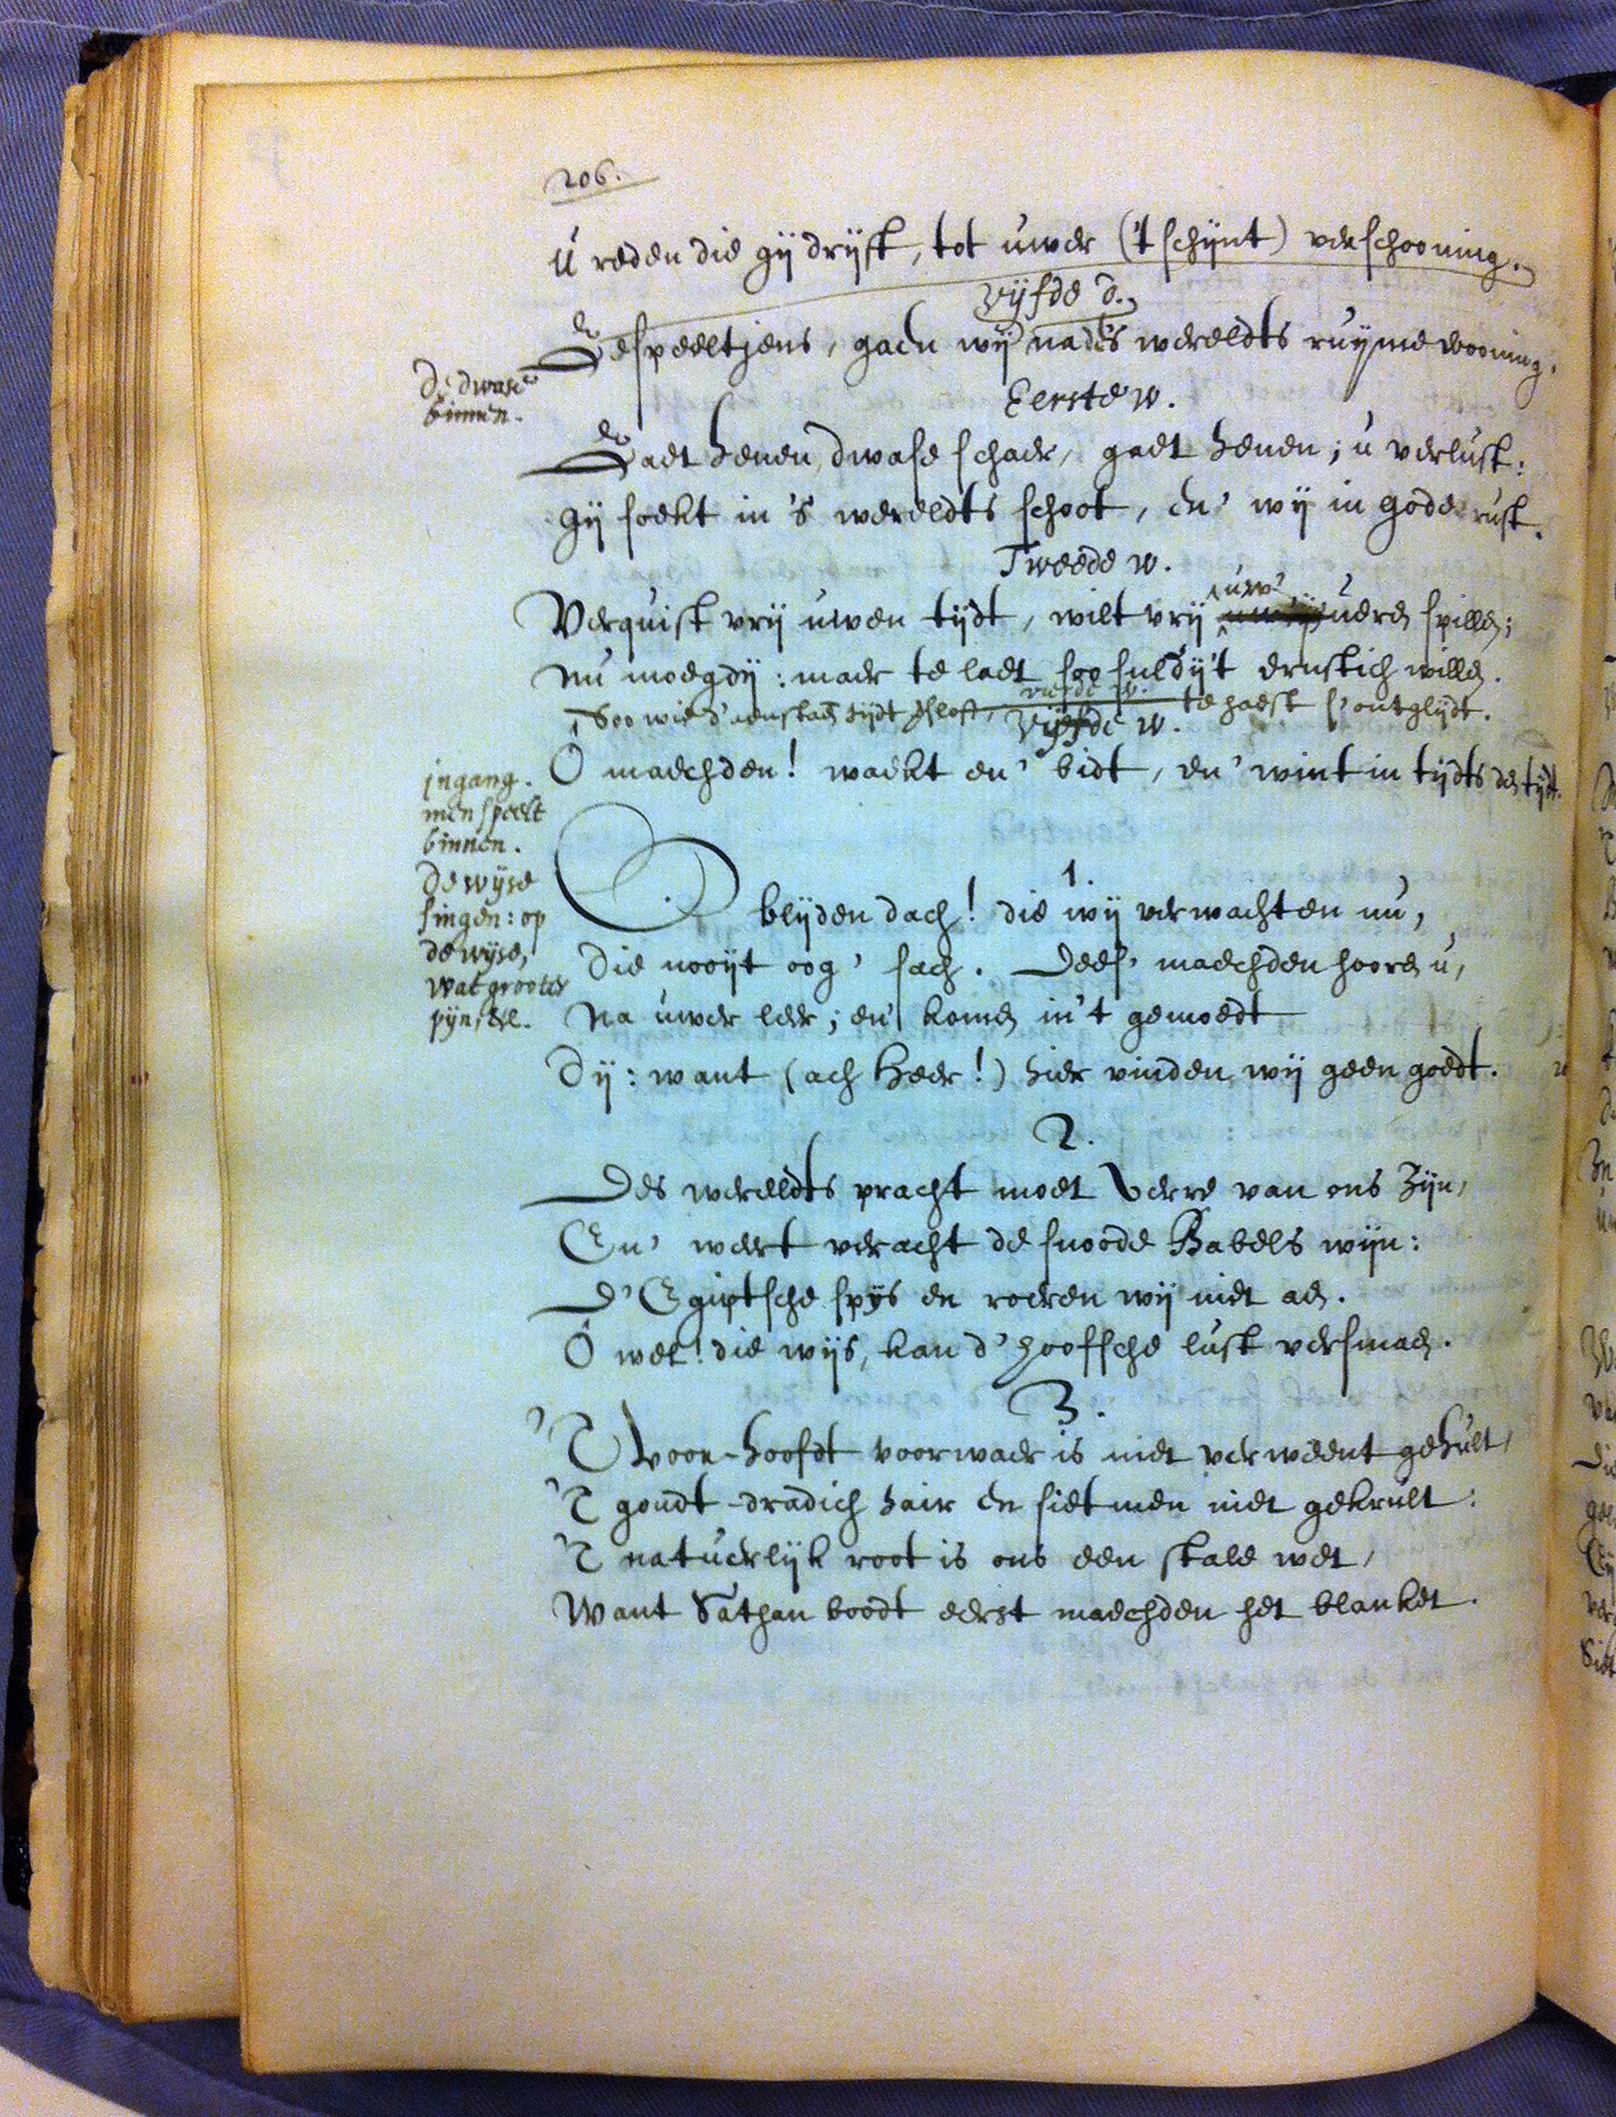 206.
U reden die gij drijft, tot uwer ('t schijnt) verschooning.
vijfde d.
Gespeeltjens, gaen wij na des wereldts ruyme wooning.
De dwase
binnen.
Eerste w.
Gaet henen dwase schaer, gaet henen; u verlust:
gij soekt in 's wereldts schoot, en' wij in gode rust.
Tweede w.
Verquist vrij uwen tijdt, wilt vrij uw' ueren spillen;
nu moegdij: maer te laet soo suldij't ernstich willen.
vierde w.
Soo wie d'aenstaen tijdt te haest s'ontglijdt.
Vijfde w.
O maechden! waekt en' bidt, en' wint in tijdts den tijdt.
ingang.
men speelt
binnen.
De wijse
singen: op
de wijse,
wat grooter
pijn/etc.
1
O blijden dach! die wij verwachten nu,
Die nooijt oog' sach. Dees' maechden hooren u,
Na uwer leer; en' komen in't gemoedt
Dij: want (ach Heer!) hier vinden wij geen goedt.
2.
Des wereldts pracht moet verre van ons zijn,
En' weert veracht de snoode Babels wijn:
D'Egiptsche spijs en roeren wij niet aen.
O wel! die wijs, kan d'hooffsche lust versmaen.
3.
'T voor-hoofdt voorwaer is niet verweent gehult,
'T goudt-dradich hair en siet men niet gekrult:
'T natuerlijk root is ons een stale wet,
Want Sathan boodt eerst maechden het blanket.